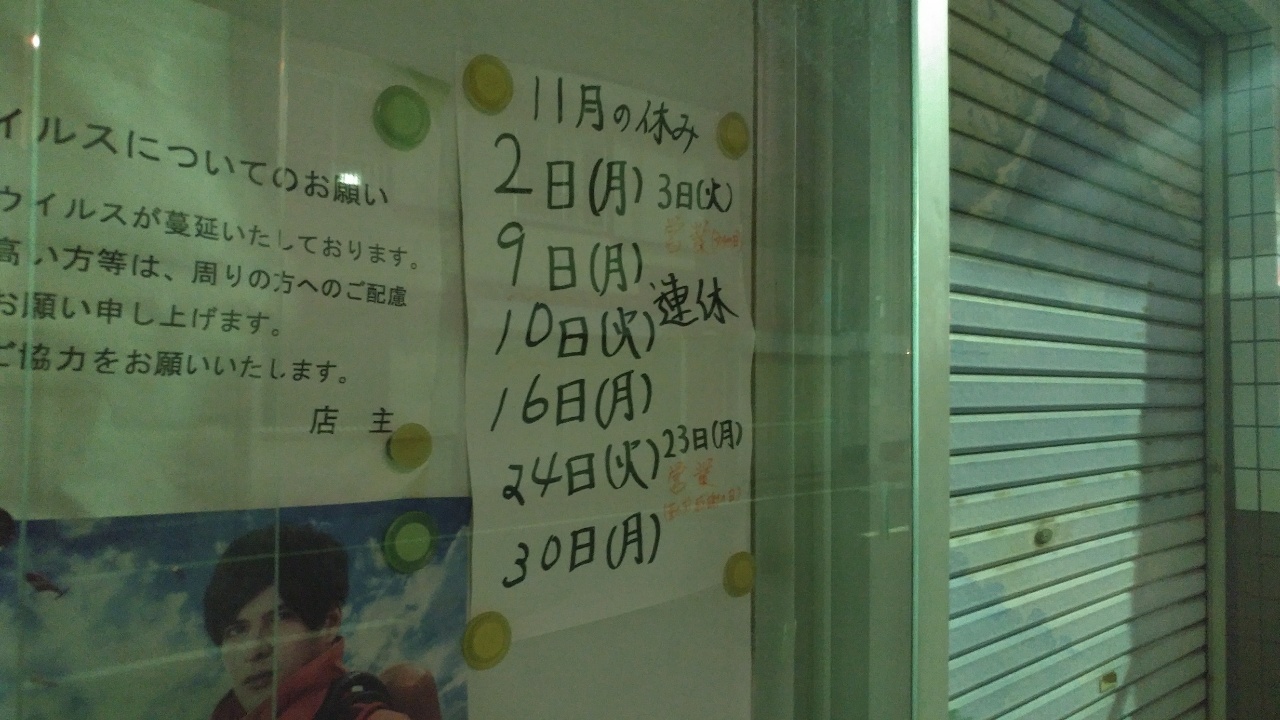 イルスについてのお願い
ウイルスが蔓延いたしております。
高い方等は、周りの方へのご配慮
お願い申し上げます。
ご協力をお願いいたします。
店 主
11月の休み
2日(月) 3日(火)
営業
9日(月)
10日(火) 連休
16日(月)
24日(火) 23日(月)
営業
30日(月)